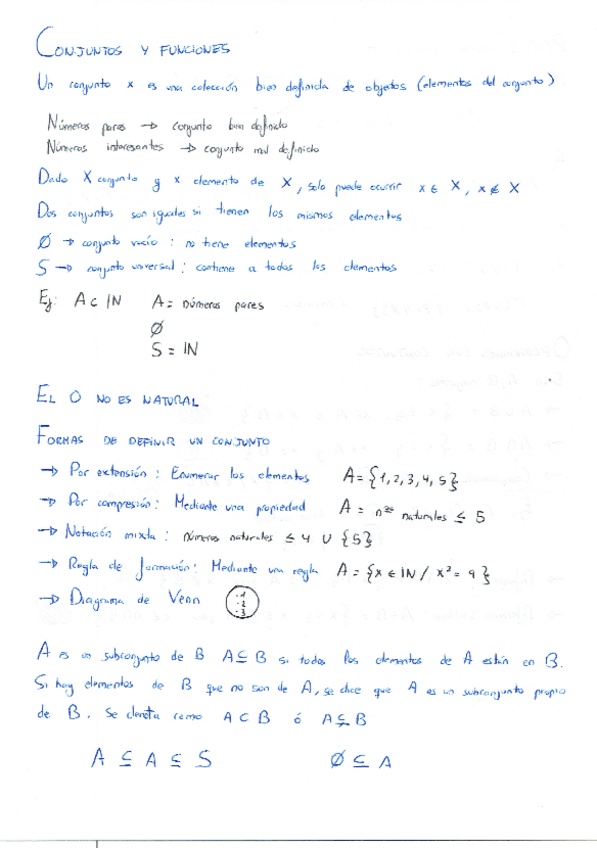 CONJUNTOS Y FUNCIONES
Un conjunto x es una colección bien definida de objetos (elementos del conjunto)
Números pares → conjunto bien definido
Números interesantes → conjunto mal definido
Dado X conjunto y x elemento de X, solo puede ocurrir x ∈ X, x ∉ X
Dos conjuntos son iguales si tienen los mismos elementos
Ø → conjunto vacío: no tiene elementos
S → conjunto universal: contiene a todos los elementos
Ej: A ⊂ IN A = números pares
Ø
S = IN
EL 0 NO ES NATURAL
FORMAS DE DEFINIR UN CONJUNTO
→ Por extensión: Enumerar los elementos A = {1,2,3,4,5}
→ Por compresión: Mediante una propiedad A = nos naturales ≤ 5
→ Notación mixta: números naturales ≤ 4 ∪ {5}
→ Regla de formación: Mediante una regla A = {x ∈ IN / x² = 9}
→ Diagrama de Venn ·1 ·2 ·3
A es un subconjunto de B A ⊆ B si todos los elementos de A están en B.
Si hay elementos de B que no son de A, se dice que A es un subconjunto propio
de B. Se denota como A ⊂ B ó A ⊊ B
A ⊆ A ⊆ S Ø ⊆ A